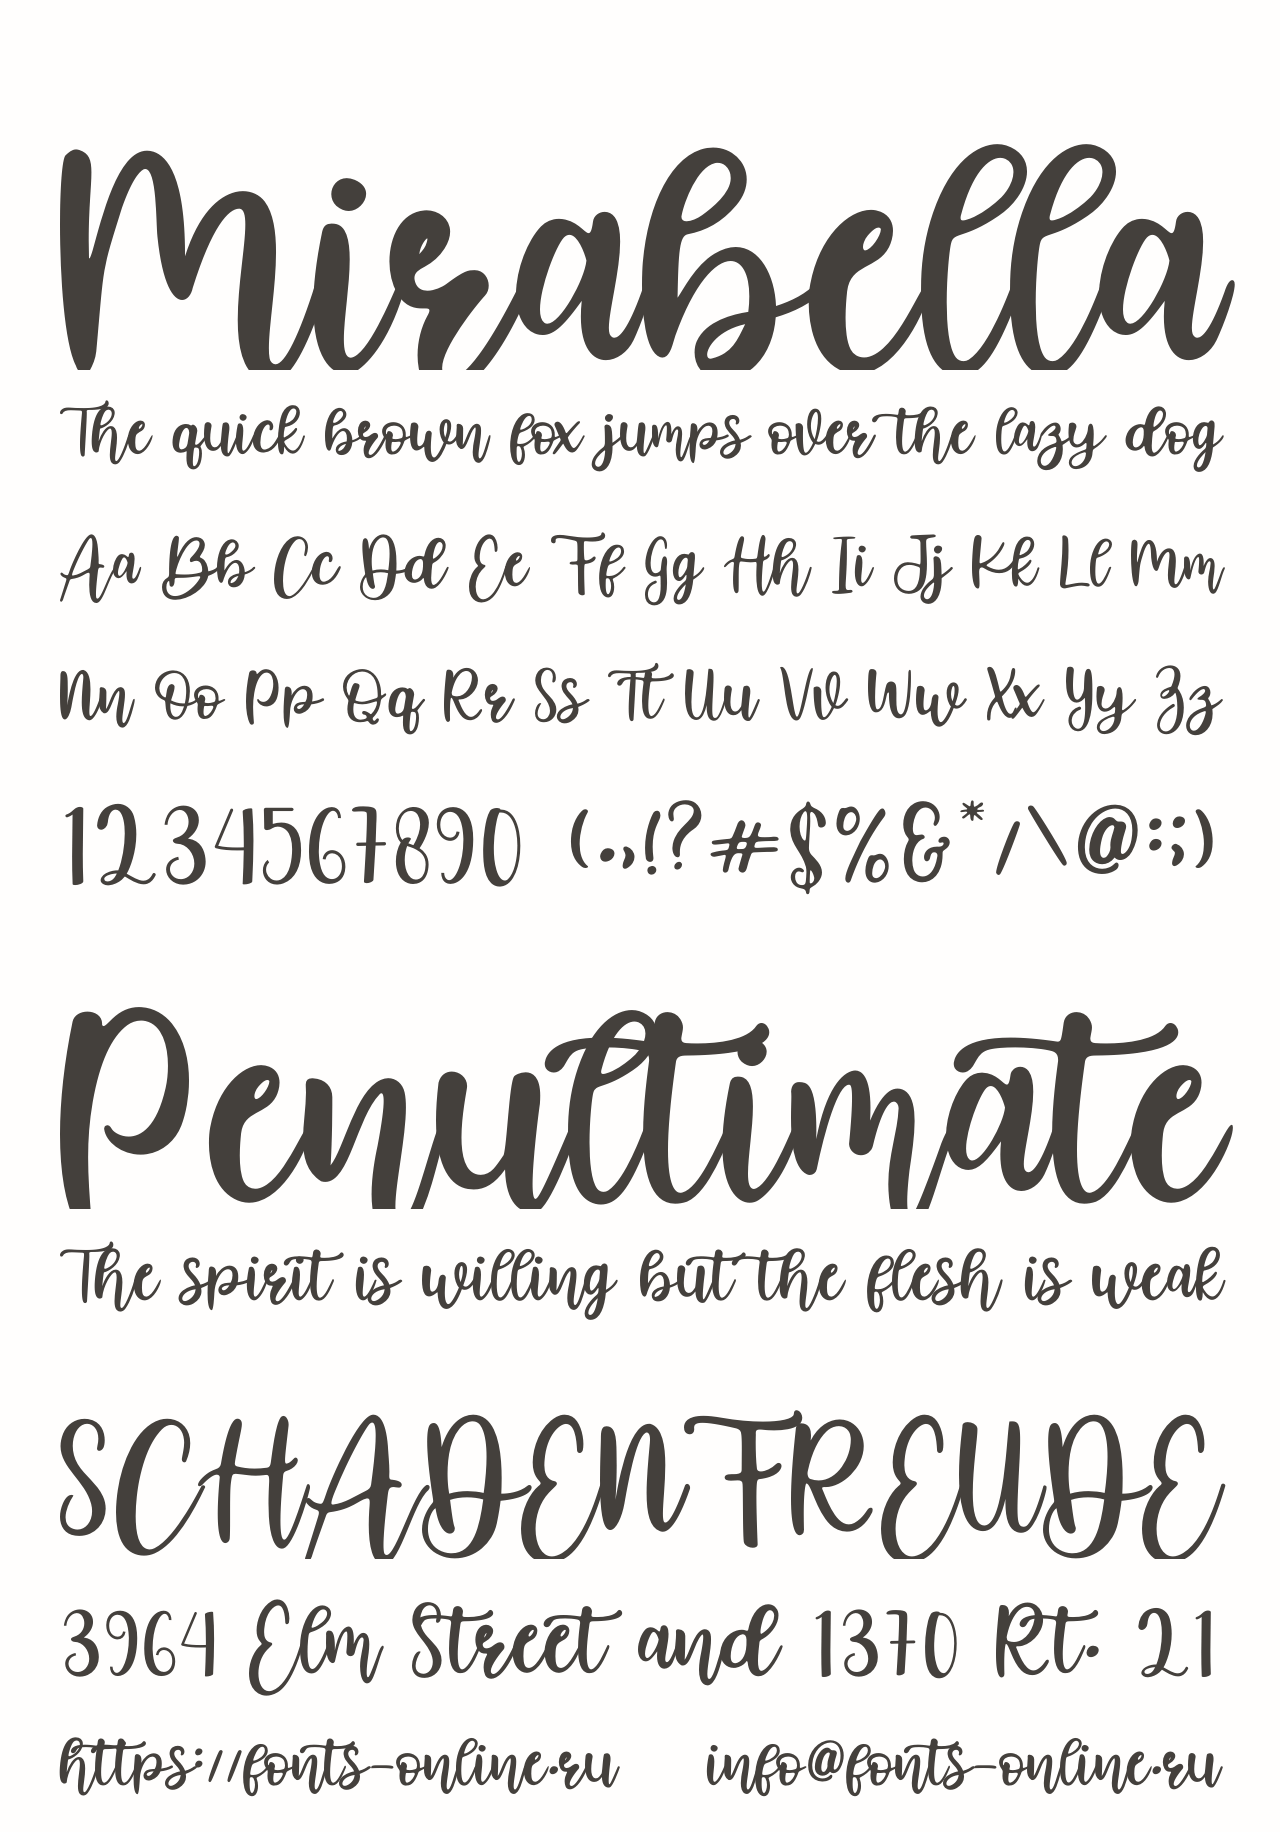 Mirabella
The quick brown fox jumps over the lazy dog
Aa Bb Cc Dd Ee Ff Gg Hh Ii Jj Kk Ll Mm
Nn Oo Pp Qq Rr Ss Tt Uu Vv Ww Xx Yy Zz
1234567890 (.,!?#$%&*/\@:;)
Penultimate
The spirit is willing but the flesh is weak
SCHADENFREUDE
3964 Elm Street and 1370 Rt. 21
https://fonts-online.ru info@fonts-online.ru